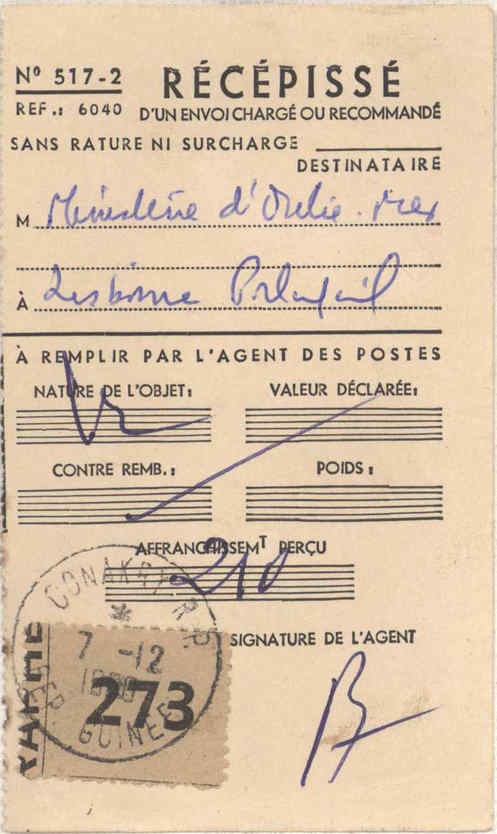 Nº 517-2
RÉCÉPISSÉ
REF.: 6040
D'UN ENVOI CHARGÉ OU RECOMMANDÉ
SANS RATURE NI SURCHARGE
DESTINATAIRE
M Ministère d'Outre-Mer
À Lisbonne Portugal
À REMPLIR PAR L'AGENT DES POSTES
NATURE DE L'OBJET:
VALEUR DÉCLARÉE:
CONTRE REMB.:
POIDS:
AFFRANCHISSEMT PERÇU
210
CONAKRY R.P.
7 -12
REP. GUINEE
273
SIGNATURE DE L'AGENT